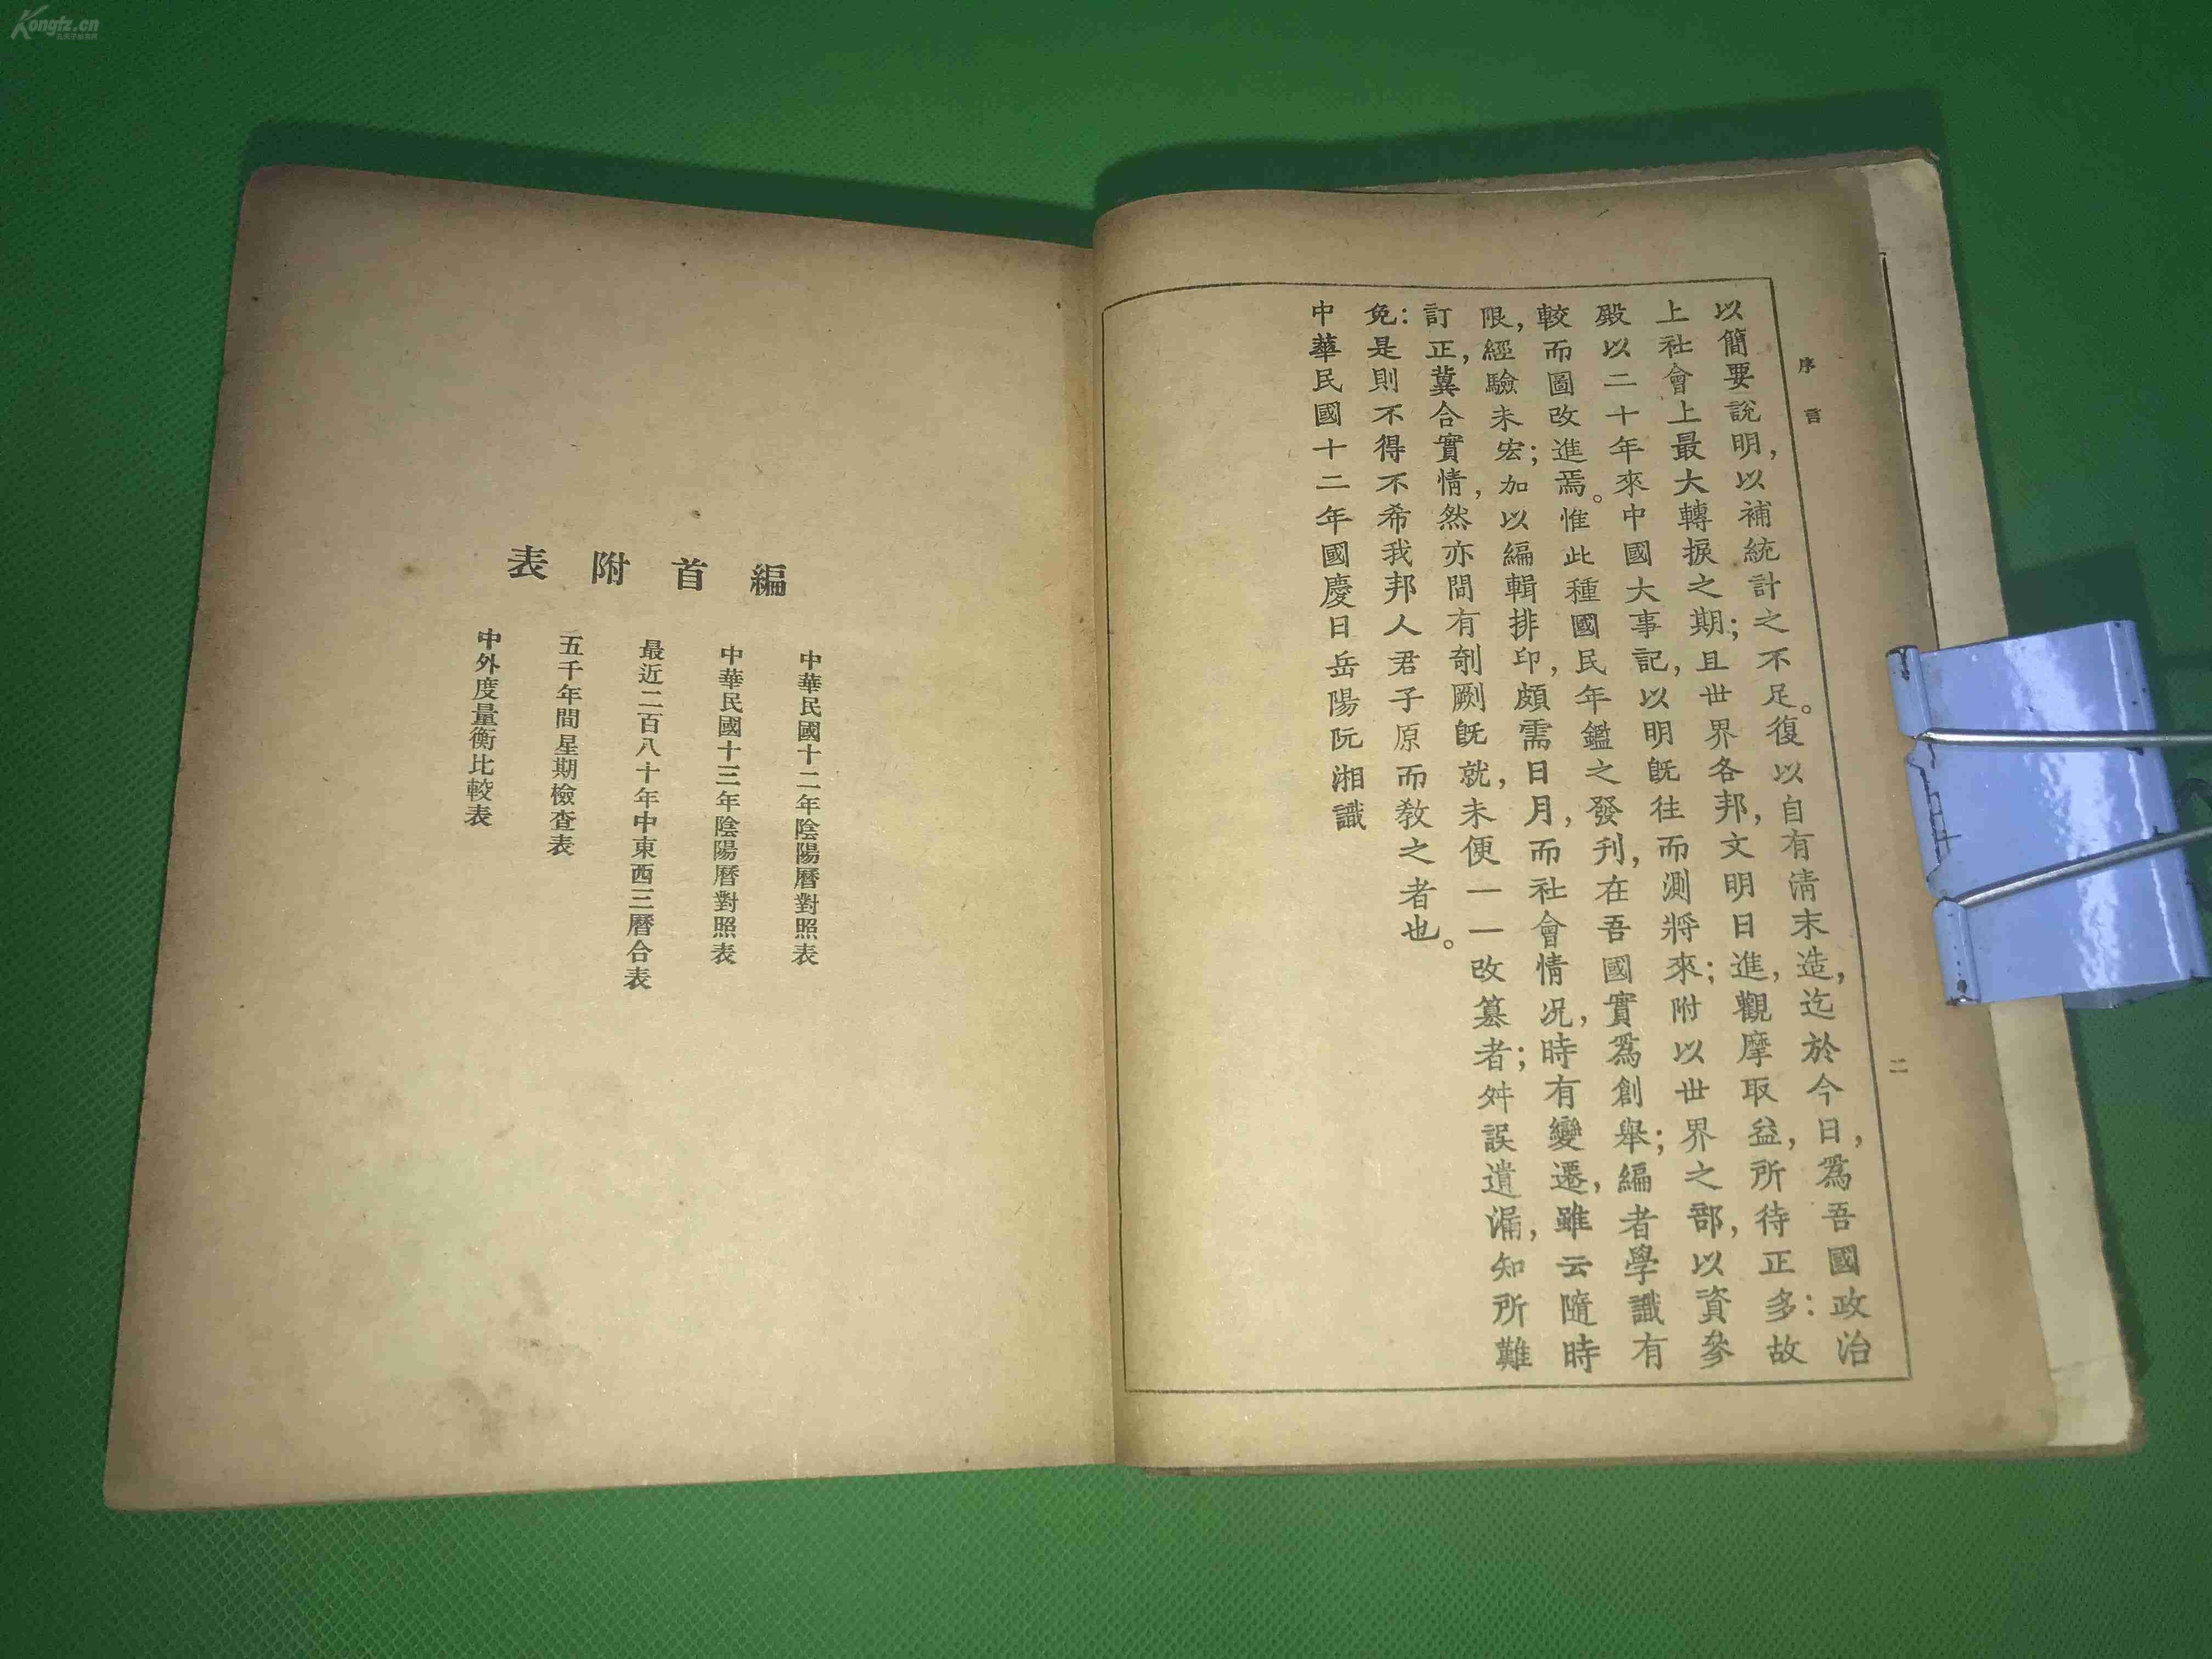 序言
二
以簡要說明，以補統計之不足。復以自有淸末造，迄於今日，爲吾國政治
上社會上最大轉捩之期；且世界各邦，文明日進，觀摩取益，所待正多：故
殿以二十年來中國大事記，以明旣往而測將來；附以世界之部，以資參
較而圖改進焉。惟此種國民年鑑之發刊，在吾國實爲創舉；編者學識有
限，經驗未宏；加以編輯排印，頗需日月，而社會情況，時有變遷，雖云隨時
訂正，冀合實情，然亦間有剞劂旣就，未便一一改纂者；舛誤遺漏，知所難
免：是則不得不希我邦人君子原而敎之者也。
中華民國十二年國慶日岳陽阮湘識
編首附表
中華民國十二年陰陽曆對照表
中華民國十三年陰陽曆對照表
最近二百八十年中東西三曆合表
五千年間星期檢查表
中外度量衡比較表
Kongfz.cn